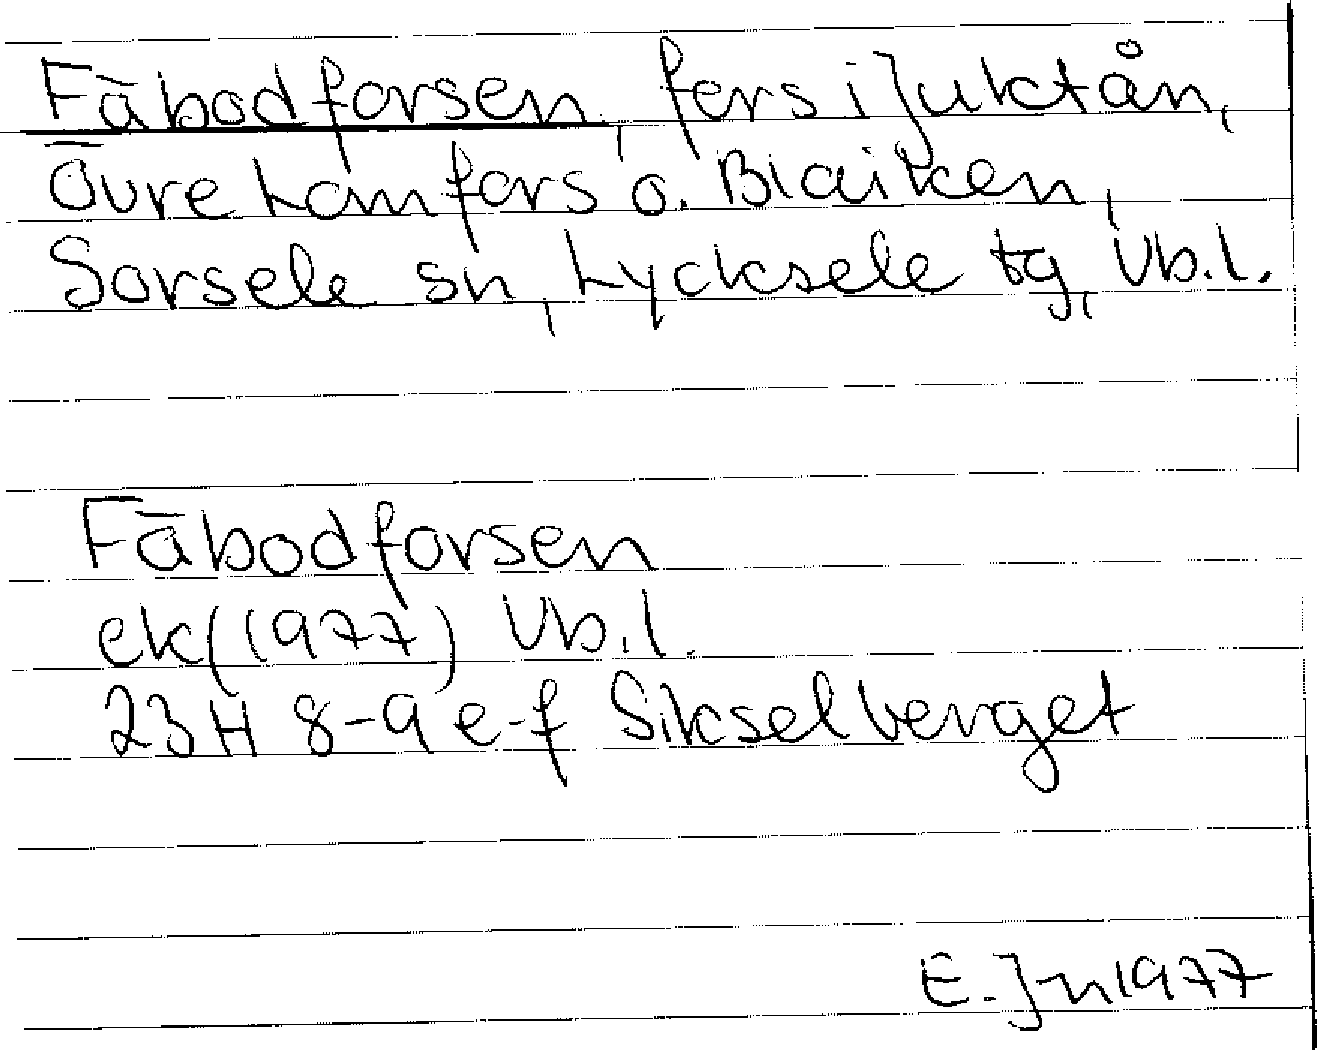 Fäbodforsen, fors i Juktån,
Övre Lomfors o. Blaiken,
Sorsele sn, Lycksele tg, Vb.l.
Fäbodforsen
ek (1977) Vb.l.
23H 8-9 e-f Sikselberget
E. Jn 1977